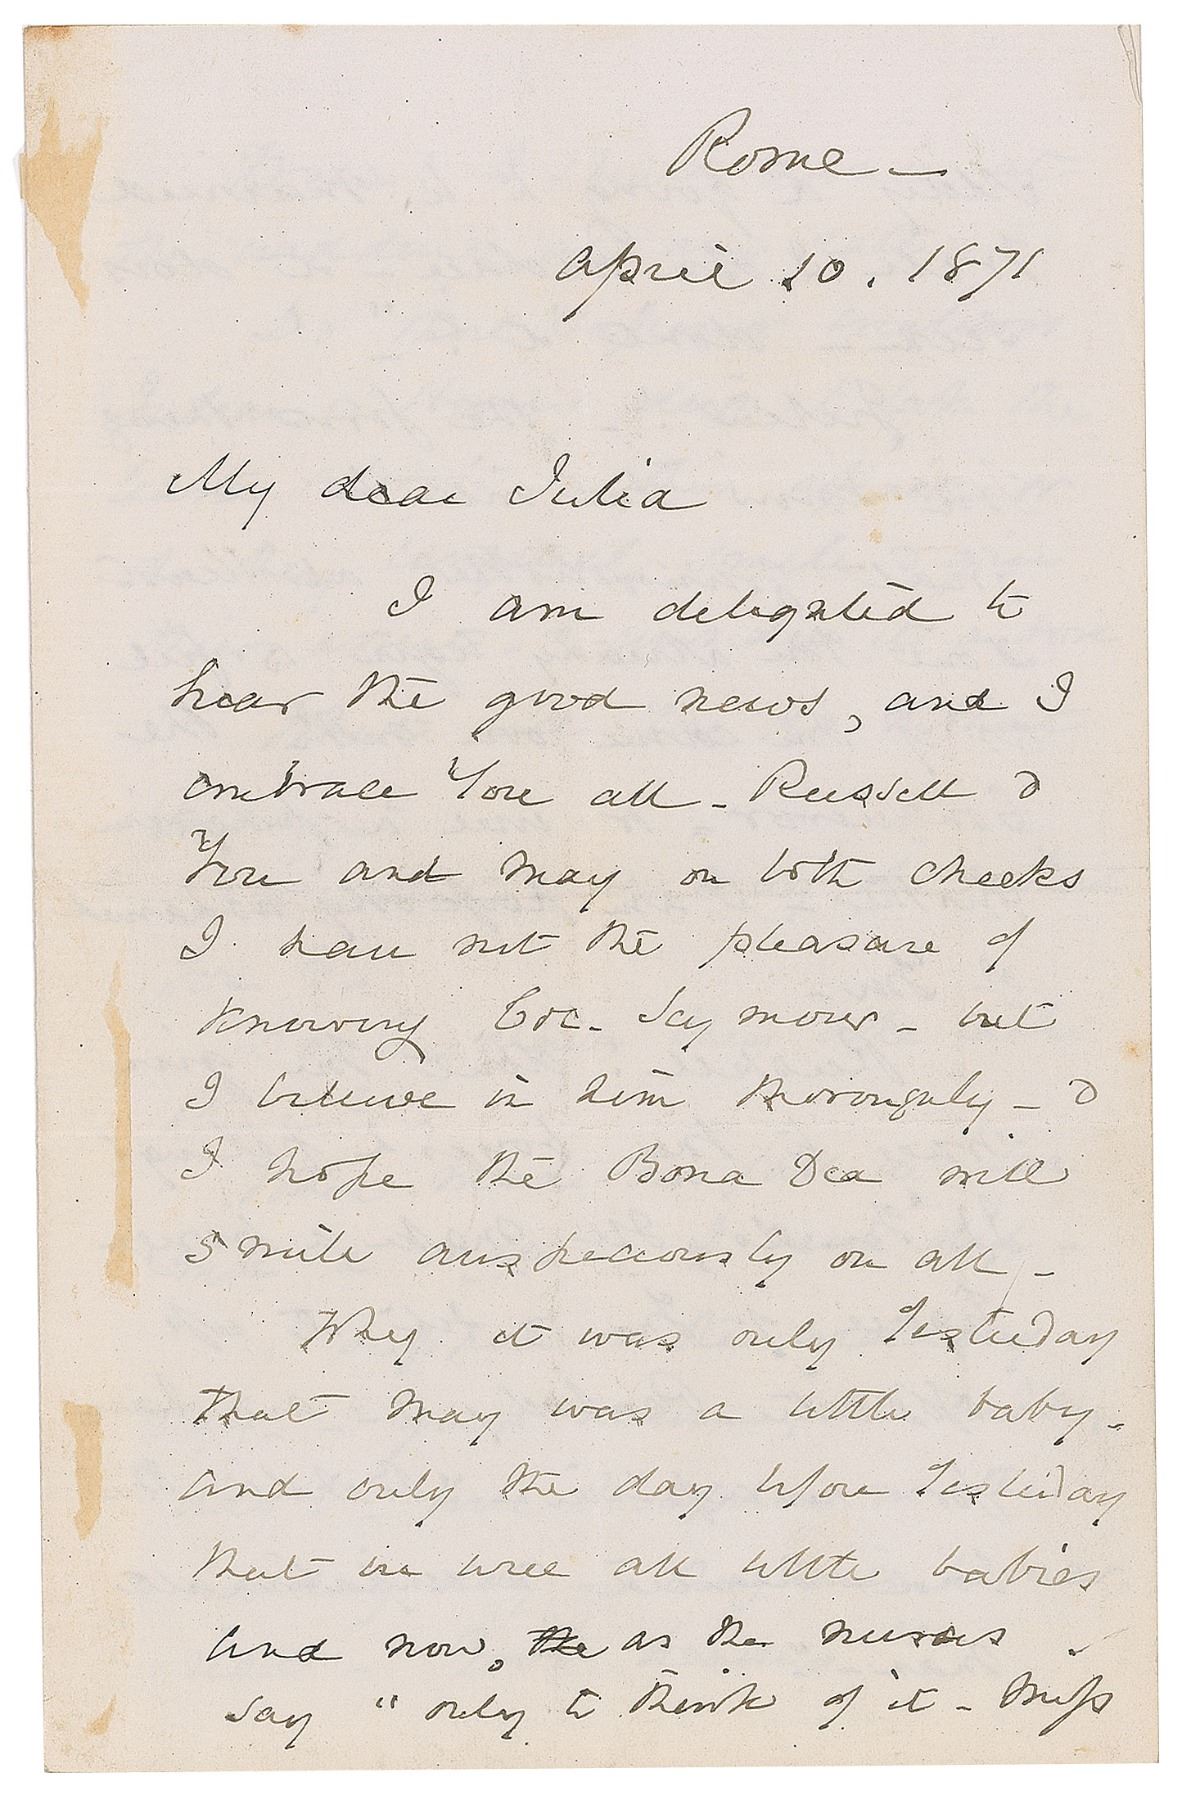 Rome —
April 10. 1871
My dear Julia
I am delighted to
hear the good news, and I
embrace You all - Russell &
You and May on both cheeks
I have not the pleasure of
knowing Col. Seymour - but
I believe in him thoroughly - &
I hope the Bona Dea will
smile auspiciously on all -
Why it was only Yesterday
that May was a little baby -
and only the day before Yesterday
that we were all little babies
and now, the as the nurses
say "only to think of it - Miss